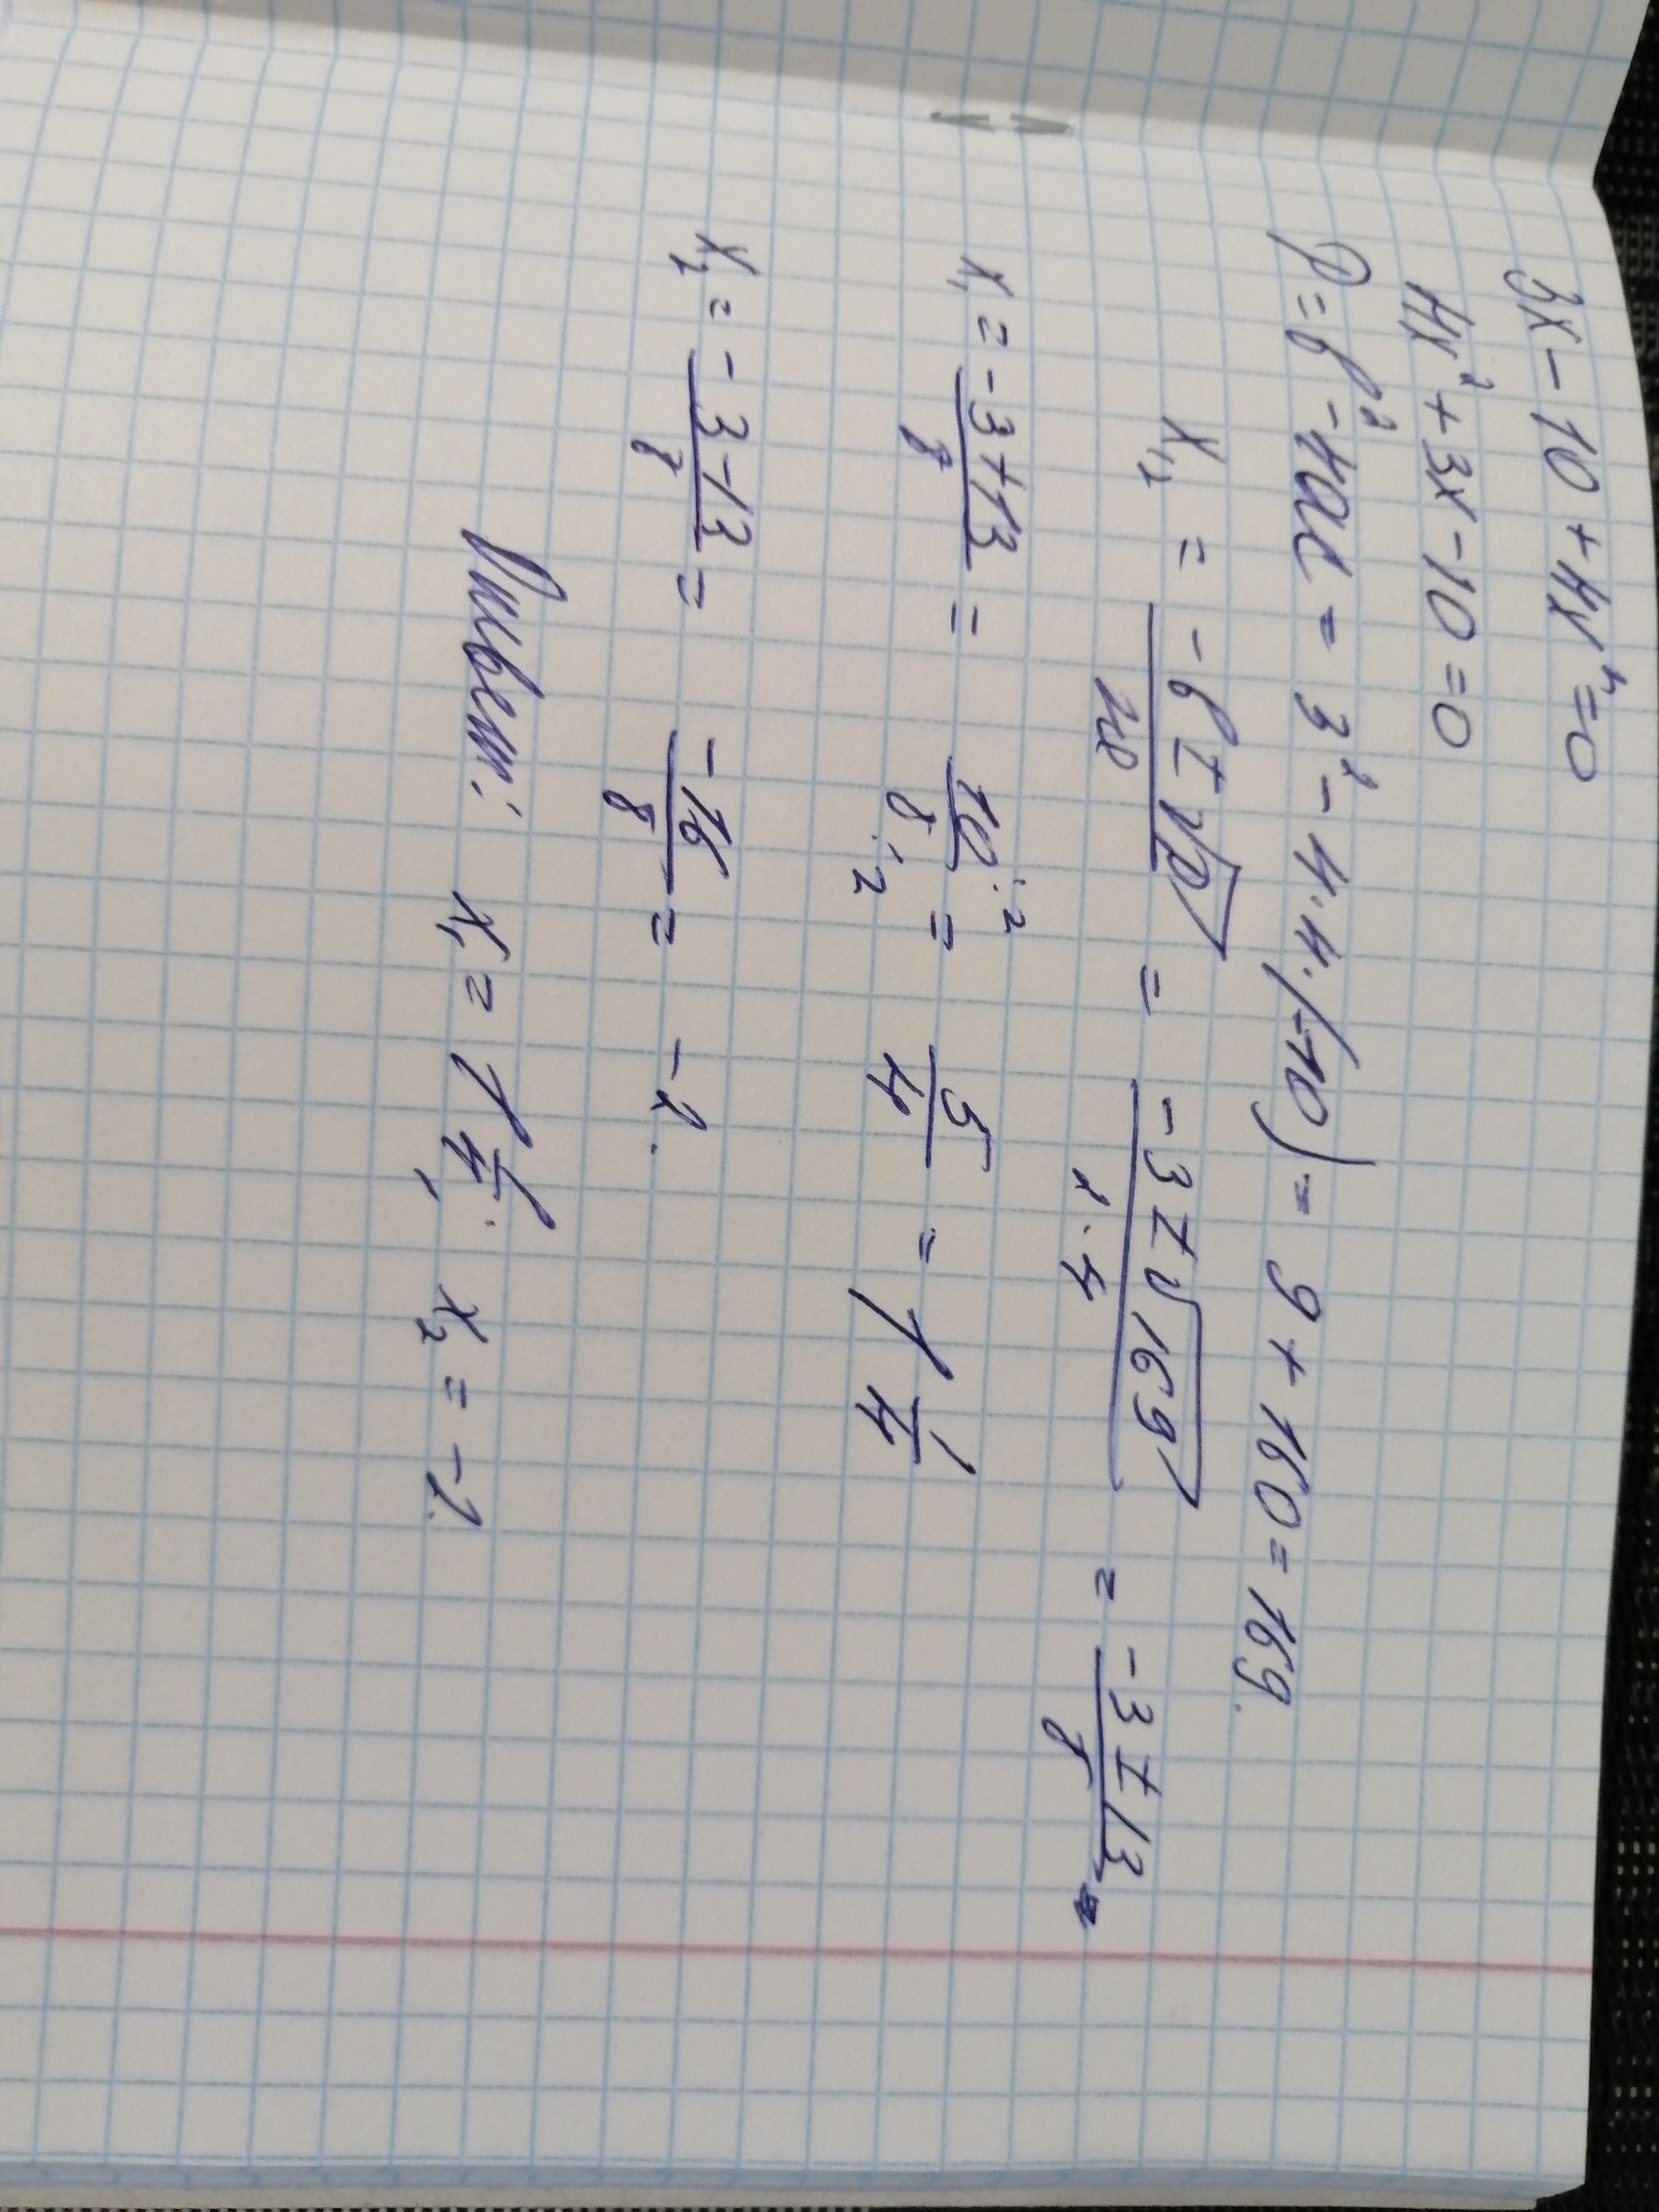 3x - 10 + 4x² = 0
4x² + 3x - 10 = 0
D = b² - 4ac = 3² - 4·4·(-10) = 9 + 160 = 169.
x₁,₂ = (-b ± √D)/(2a) = (-3 ± √169)/(2·4) = (-3 ± 13)/8 =
x₁ = (-3 + 13)/8 = (10 :2)/(8 :2) = 5/4 = 1 1/4
x₂ = (-3 - 13)/8 = (-16)/8 = -2.
Ответ: x₁ = 1 1/4; x₂ = -2.